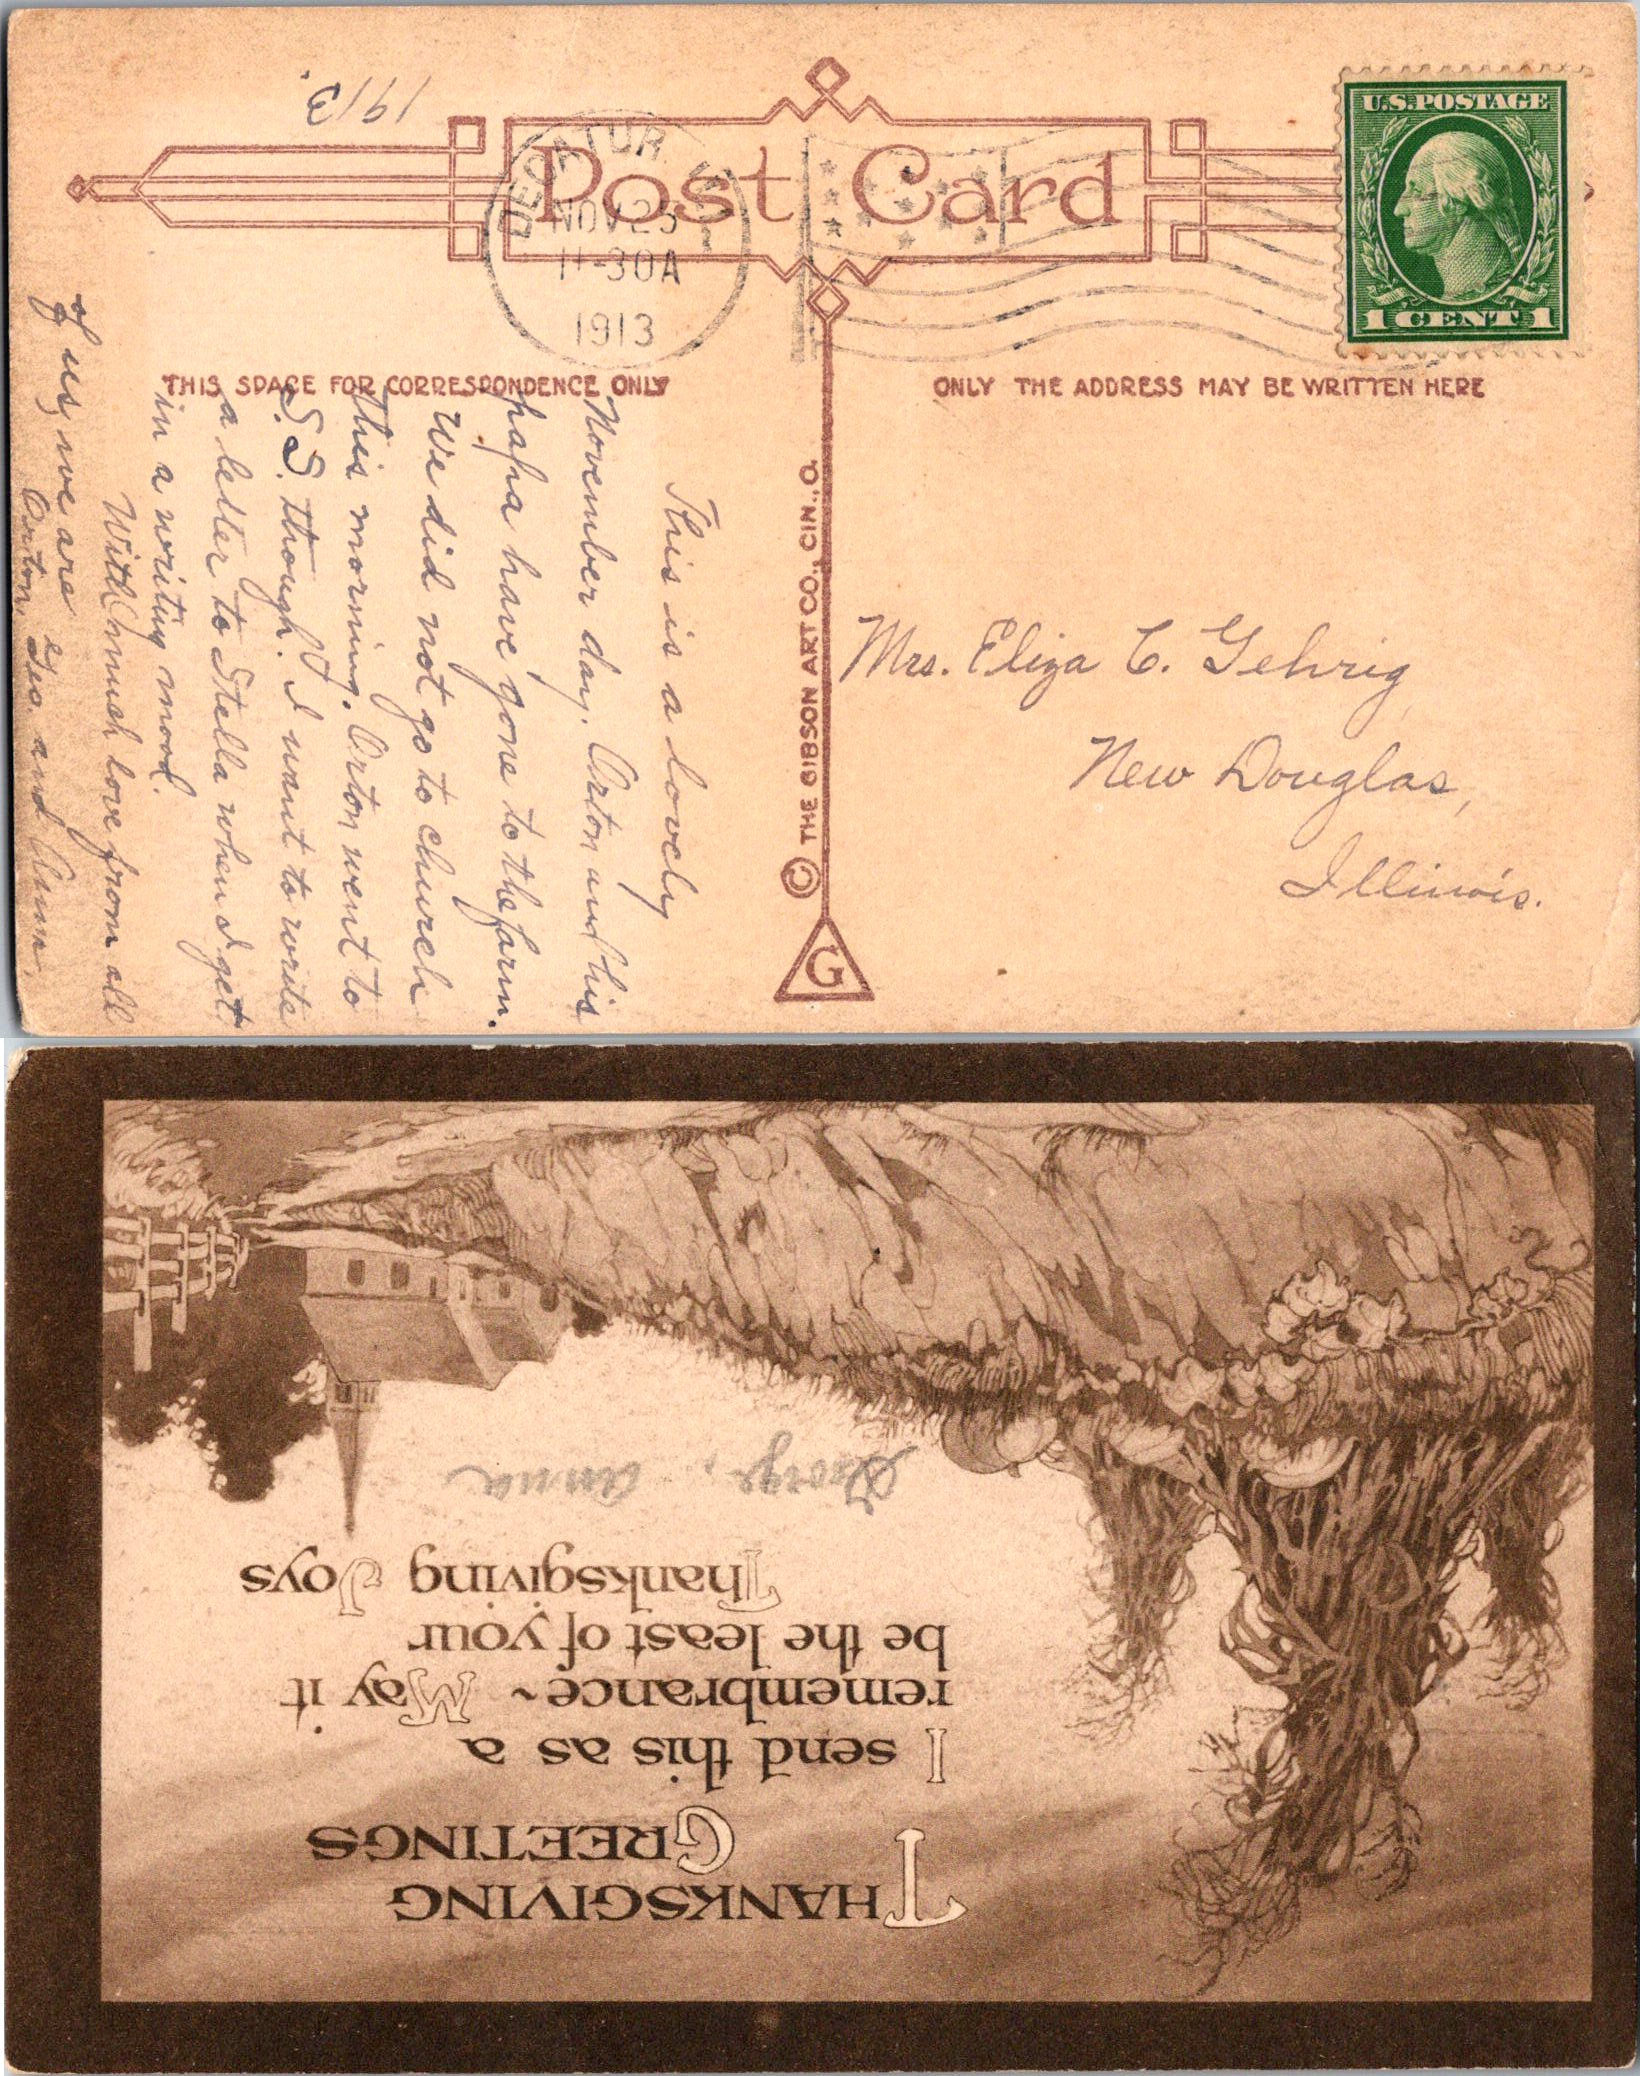 1913.
Post Card
DECATUR
NOV 23
-30A
1913
U.S. POSTAGE
1 CENT 1
THIS SPACE FOR CORRESPONDENCE ONLY
ONLY THE ADDRESS MAY BE WRITTEN HERE
This is a lovely
November day. Orton and his
papa have gone to the farm.
We did not go to church
this morning. Orton went to
S. S. though. I want to write
a letter to Stella when I get
in a writing mood.
With much love from all
of us, we are
Orton, Geo. and Anna.
© THE GIBSON ART CO., CIN., O.
G
Mrs. Eliza C. Gehrig,
New Douglas,
Illinois.
THANKSGIVING
GREETINGS
I send this as a
remembrance ~ May it
be the least of your
Thanksgiving Joys
George, Anna